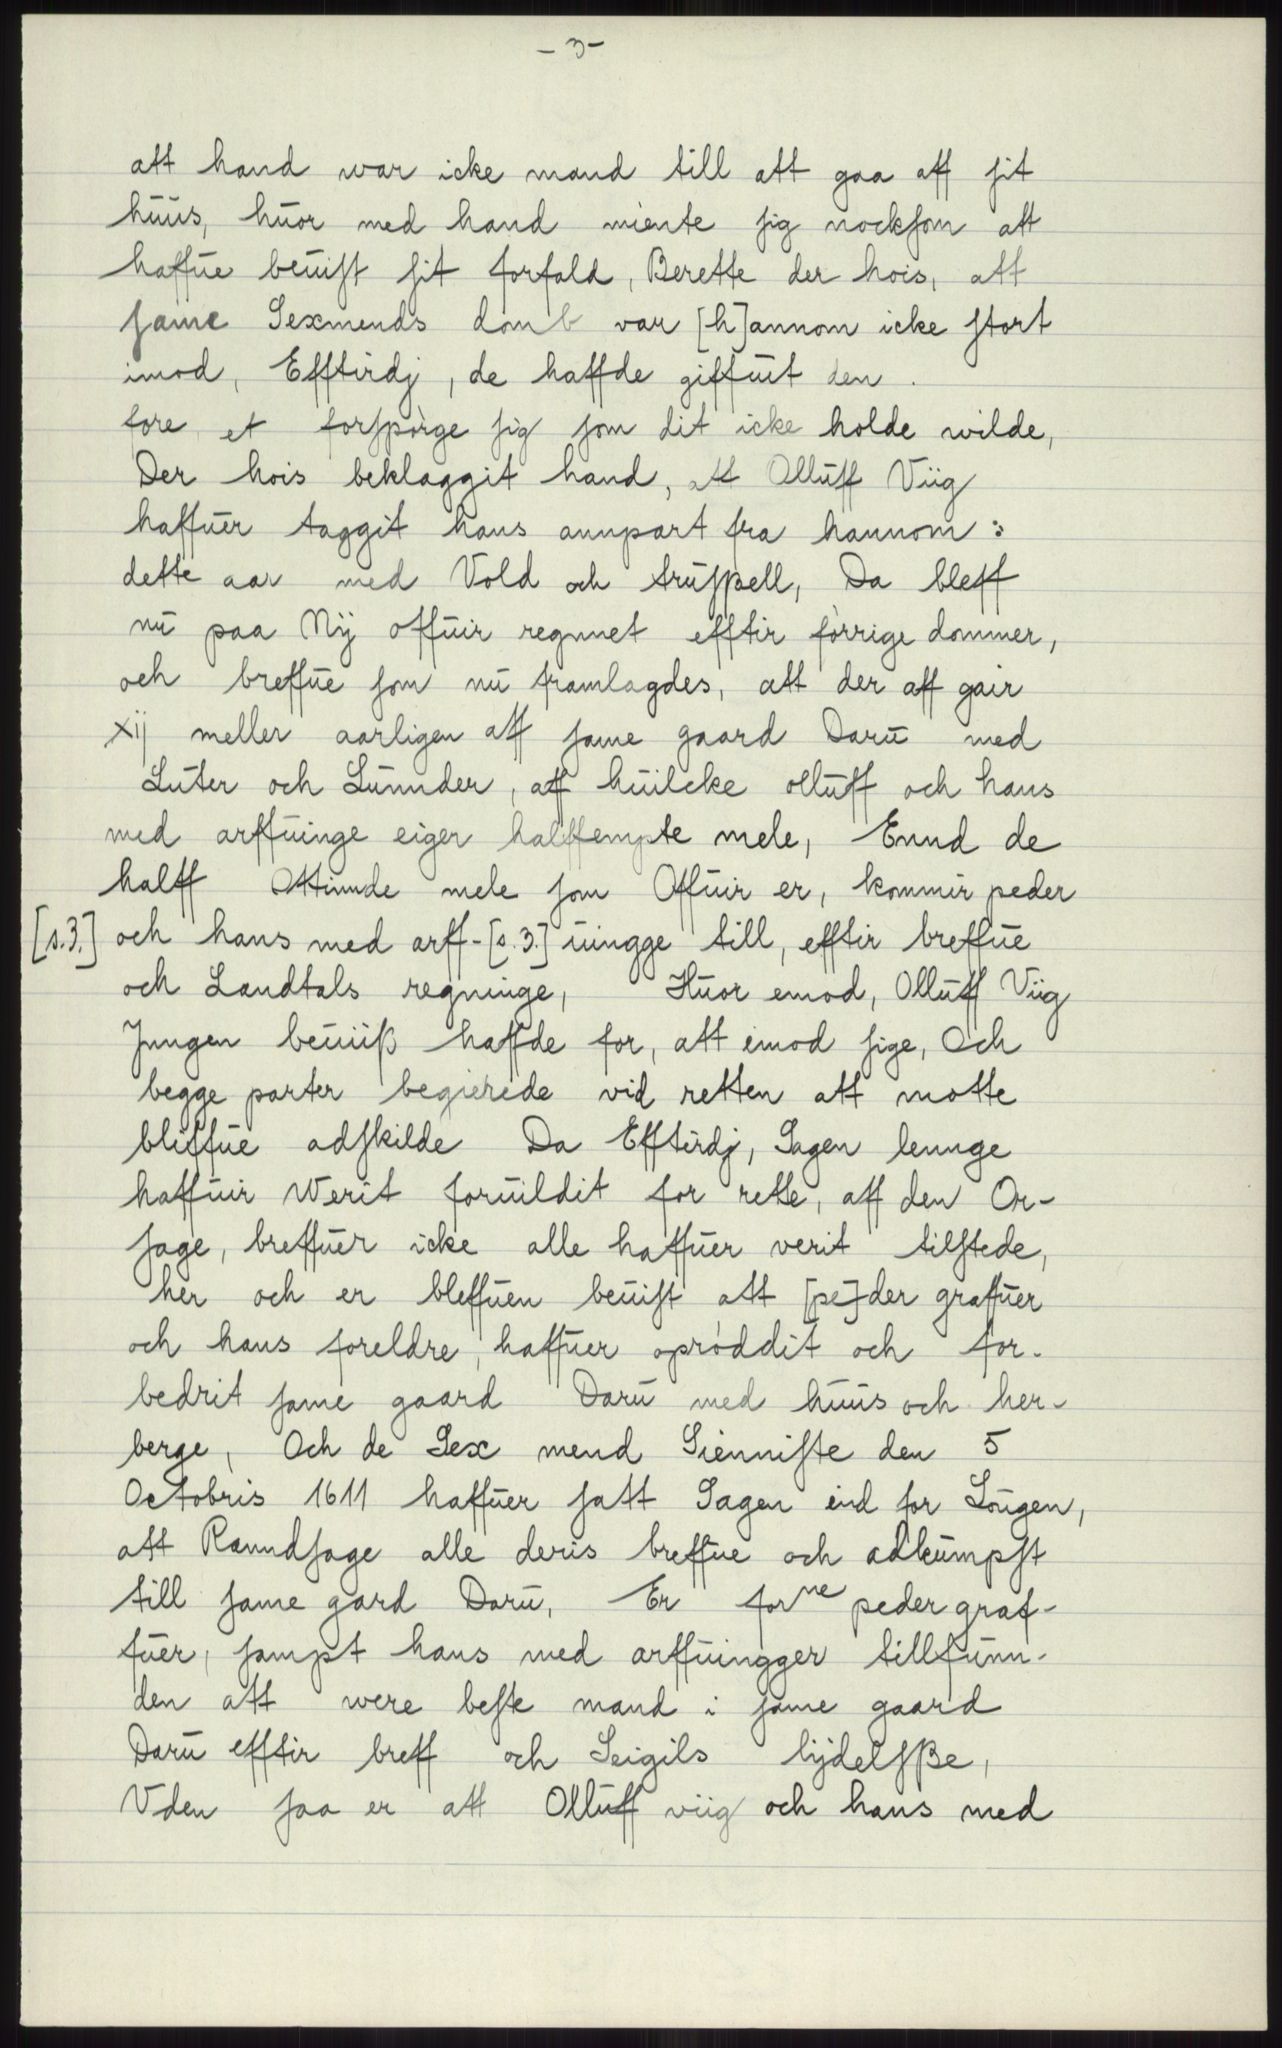 - 3 -
att hand war icke mand till att gaa aff sit
hüüs, hüor med hand miente sig nocksom att
haffüe beüist sit forfald, Berette der hois, att
same Sexmends domb var [h]annom icke stort
imod, Efftirdj, de haffde giffüit den.
fore et forspørge sig som dit icke holde wilde,
Der hois beklaggit hand, att Ollüff Viig
haffüer taggit hans annpart fra hannom:
dette aar med Vold och trüsßell, Da bleff
nü paa Nÿ offüir regnnet efftir førrige dommer,
och breffüe som nü framlagdes, att der aff gair
xij meller aarligen aff same gaard Darü med
Lüter och Lünnder, aff hüilcke ollüff och hans
med arffüinge eiger halffempte mele, Ennd de
halff Ottinnde mele som Offüir er, kommir peder
[s.3.] och hans med arff-[s.3.] üingge till, efftir breffüe
och Landtals regninge, Hüor emod, Ollüff Viig
Jnngen beüiiß haffde for, att imod sige, Och
begge parter begierede vid retten att motte
bliffüe adskilde Da Efftirdj, Sagen lennge
haffüir Werit forüildit for rette, aff den Or-
sage, breffüer icke alle haffüer verit tilstede,
her och er bleffüen beüist att [pe]der graffüer
och hans foreldre, haffüer oprøddit och for-
bedrit same gaard Darü med hüüs och her-
berge, Och de Sex mend Sienniste den 5
Octobris 1611 haffüer satt Sagen ind for Loügen,
att Ranndsage alle deris breffüe och adkümpst
till same gard Darü, Er forne peder graf-
füer, sampt hans med arffüingger tillfünn-
den att were beste mand i same gaard
Darü efftir breff och Seigils lÿdelsße,
Vden saa er att Ollüff viig och hans med